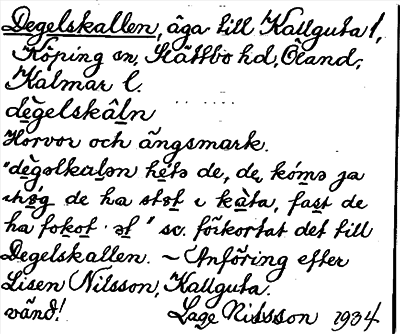 Degelskallen, äga till Kallguta 1,
Köping sn, Slättbo hd, Öland,
Kalmar l.
dègelskâḷn
Horvor och ängsmark.
"dègəlskaḷən hétə de, de kómə ja
ihǿg de ha støt i kàta, fast de
ha fokot əf" sv. förkortat det till
Degelskallen. — Anföring efter
Lisen Nilsson, Kallguta.
vänd! Lage Nilsson 1934